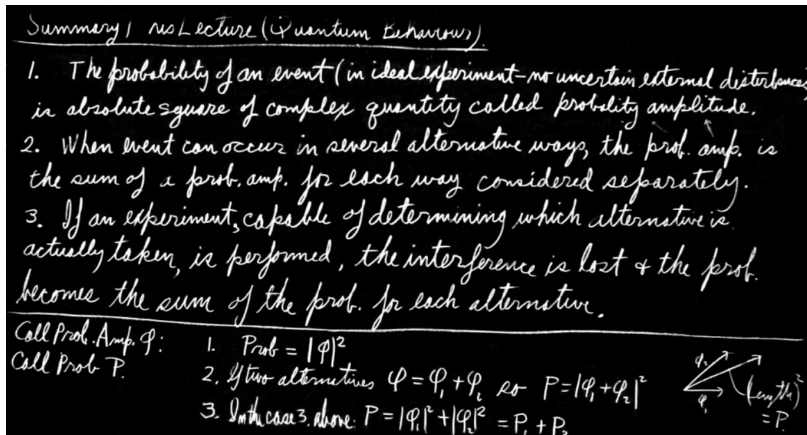 Summary, this Lecture (Quantum Behaviour)
1. The probability of an event (in ideal experiment - no uncertain external disturbances
is absolute square of complex quantity called probality amplitude.
2. When event can occur in several alternative ways, the prob. amp. is
the sum of a prob. amp. for each way considered separately.
3. If an experiment, capable of determining which alternative is
actually taken, is performed, the interference is lost & the prob.
becomes the sum of the prob. for each alternative.
Call Prob. Amp. φ:
Call Prob P.
1. Prob = |φ|²
2. If two alternatives φ = φ₁ + φ₂ so P = |φ₁ + φ₂|²
3. In the case 3. above: P = |φ₁|² + |φ₂|² = P₁ + P₂
φ₂
φ₁
(length)²
= P.